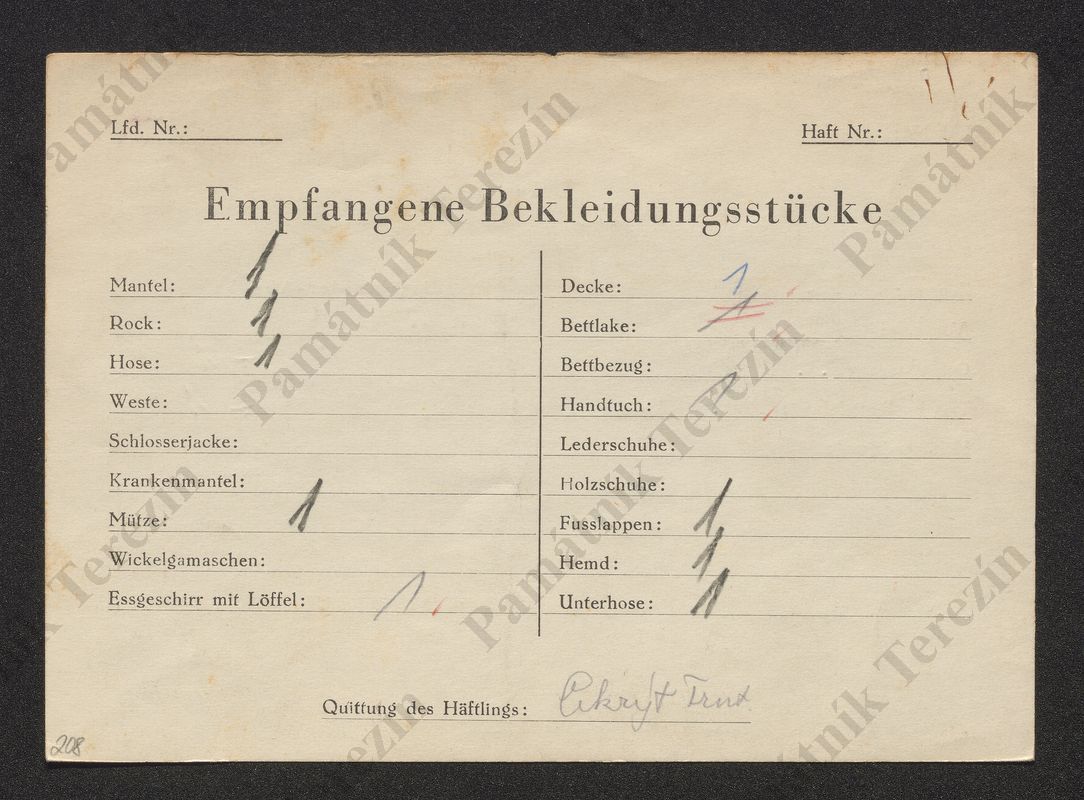 Lfd. Nr.:
Haft Nr.:
Empfangene Bekleidungsstücke
Mantel: 1
Rock: 1
Hose: 1
Weste:
Schlosserjacke:
Krankenmantel:
Mütze: 1
Wickelgamaschen:
Essgeschirr mit Löffel: 1
Decke: 1
Bettlake: 1
Bettbezug:
Handtuch: 1
Lederschuhe:
Holzschuhe:
Fusslappen: 1
Hemd: 1
Unterhose: 1
Quittung des Häftlings:
208
Památník Terezín